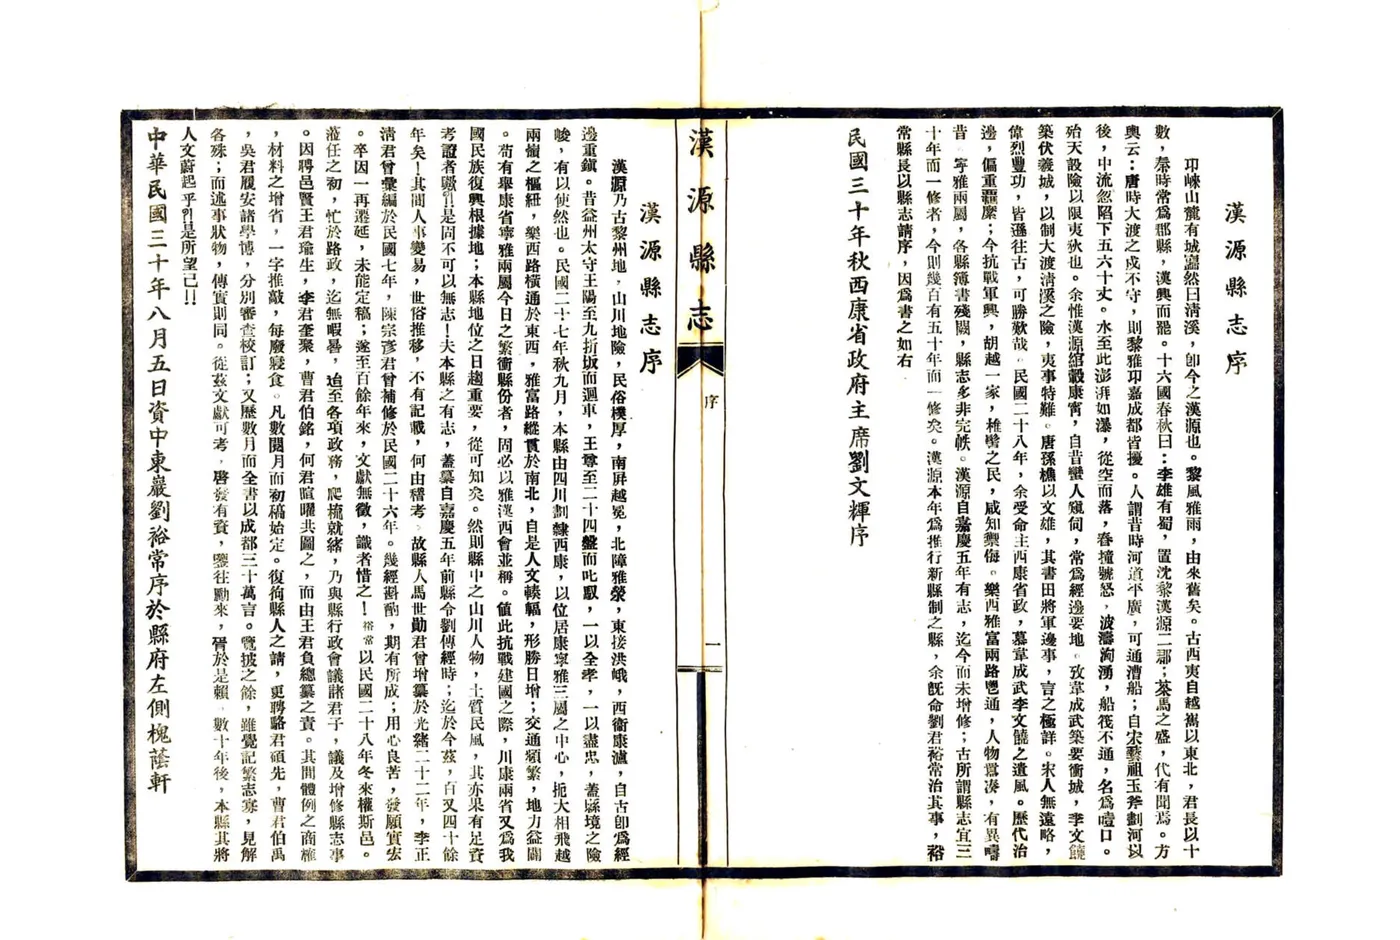 漢源縣志序
邛崍山麓有城巋然曰清溪，卽今之漢源也。黎風雅雨，由來舊矣。古西夷自越嶲以東北，君長以十
數，秦時常爲郡縣，漢興而罷。十六國春秋曰：李雄有蜀，置沈黎漢源二郡；茶馬之盛，代有聞焉。方
輿云：唐時大渡之戍不守，則黎雅邛嘉成都皆擾。人謂昔時河道平廣，可通漕船；自宋藝祖玉斧劃河以
後，中流忽陷下五六十丈。水至此澎湃如瀑，從空而落，舂撞號怒，波濤洶湧，船筏不通，名爲噎口。
殆天設險以限夷狄也。余惟漢源綰轂康甯，自昔蠻人窺伺，常爲經邊要地。攷韋成武築要衝城，李文饒
築伏羲城，以制大渡清溪之險，夷事特難。唐孫樵以文雄，其書田將軍邊事，言之極詳。宋人無遠略，
偉烈豐功，皆遜往古，可勝歎哉。民國二十八年，余受命主西康省政，慕韋成武李文饒之遺風。歷代治
邊，偏重羈縻；今抗戰軍興，胡越一家，椎髻之民，咸知禦侮。樂西雅富兩路鬯通，人物蕃湊，有異疇
昔。寧雅兩屬，各縣簿書殘闕，縣志多非完帙。漢源自嘉慶五年有志，迄今而未增修；古所謂縣志宜三
十年而一修者，今則幾百有五十年而一修矣。漢源本年爲推行新縣制之縣，余旣命劉君裕常治其事，裕
常縣長以縣志請序，因爲書之如右
民國三十年秋西康省政府主席劉文輝序
漢源縣志
序
一
漢源縣志序
漢源乃古黎州地，山川地險，民俗樸厚，南屏越冕，北障雅滎，東接洪峨，西衞康瀘，自古卽爲經
邊重鎮。昔益州太守王陽至九折坂而迴車，王尊至二十四盤而叱馭，一以全孝，一以盡忠，蓋縣境之險
峻，有以使然也。民國二十七年秋九月，本縣由四川劃隸西康，以位居康寧雅三屬之中心，扼大相飛越
兩嶺之樞紐，樂西路橫通於東西，雅富路縱貫於南北，自是人文輳輻，形勝日增；交通頻繁，地力益闢
。苟有舉康省寧雅兩屬今日之繁衝縣份者，固必以雅漢西會並稱。値此抗戰建國之際，川康兩省又爲我
國民族復興根據地；本縣地位之日趨重要，從可知矣。然則縣中之山川人物，土質民風，其亦果有足資
考證者歟！是固不可以無志！夫本縣之有志，蓋纂自嘉慶五年前縣令劉傳經時；迄於今茲，百又四十餘
年矣！其間人事變易，世俗推移，不有記載，何由稽考。故縣人馬世勛君曾增纂於光緒二十二年，李正
清君曾彙編於民國七年，陳宗彥君曾補修於民國二十六年。幾經斟酌，期有所成；用心良苦，發願實宏
。卒因一再遷延，未能定稿；遂至百餘年來，文獻無徵，識者惜之！裕常以民國二十八年冬來權斯邑。
蒞任之初，忙於路政，迄無暇晷，迨至各項政務，爬梳就緒，乃與縣行政會議諸君子，議及增修縣志事
。因聘邑賢王君瑜生，李君奎聚，曹君伯銘，何君暄曜共圖之，而由王君負總纂之責。其間體例之商榷
，材料之增省，一字推敲，每廢寢食。凡數閱月而初稿始定。復徇縣人之請，更聘駱君碩先，曹君伯禹
，吳君履安諸學博，分別審查校訂；又歷數月而全書以成都三十萬言。覽披之餘，雖覺記繁志寡，見解
各殊；而述事狀物，傳實則同。從茲文獻可考，啓發有資，鑒往勵來，胥於是賴。數十年後，本縣其將
人文蔚起乎！是所望已！！
中華民國三十年八月五日資中東巖劉裕常序於縣府左側槐蔭軒